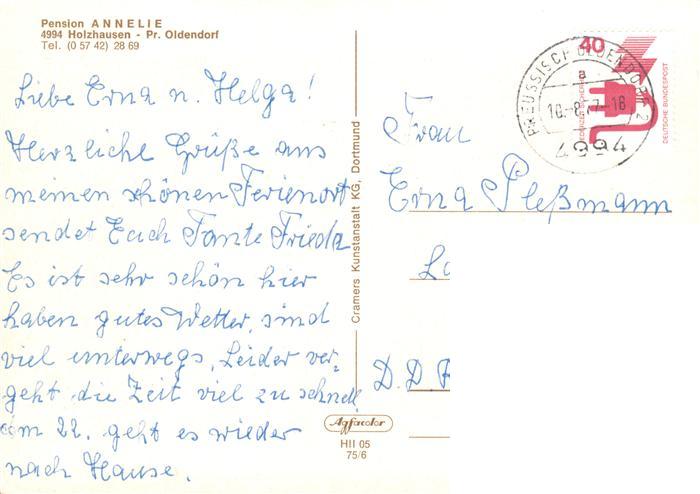 Pension ANNELIE
4994 Holzhausen - Pr. Oldendorf
Tel. (0 57 42) 28 69
Liebe Erna u. Helga!
Herzliche Grüße aus
meinen schönen Ferienort
sendet Euch Tante Frieda
Es ist sehr schön hier
haben gutes Wetter, sind
viel unterwegs, Leider ver-
geht die Zeit viel zu schnell
am 22. geht es wieder
nach Hause.
Cramers Kunstanstalt KG, Dortmund
Agfacolor
HII 05
75/6
40
DEUTSCHE BUNDESPOST
PREUSSISCH OLDENDORF 2
a
4994
Frau
Erna Pleßmann
D.D